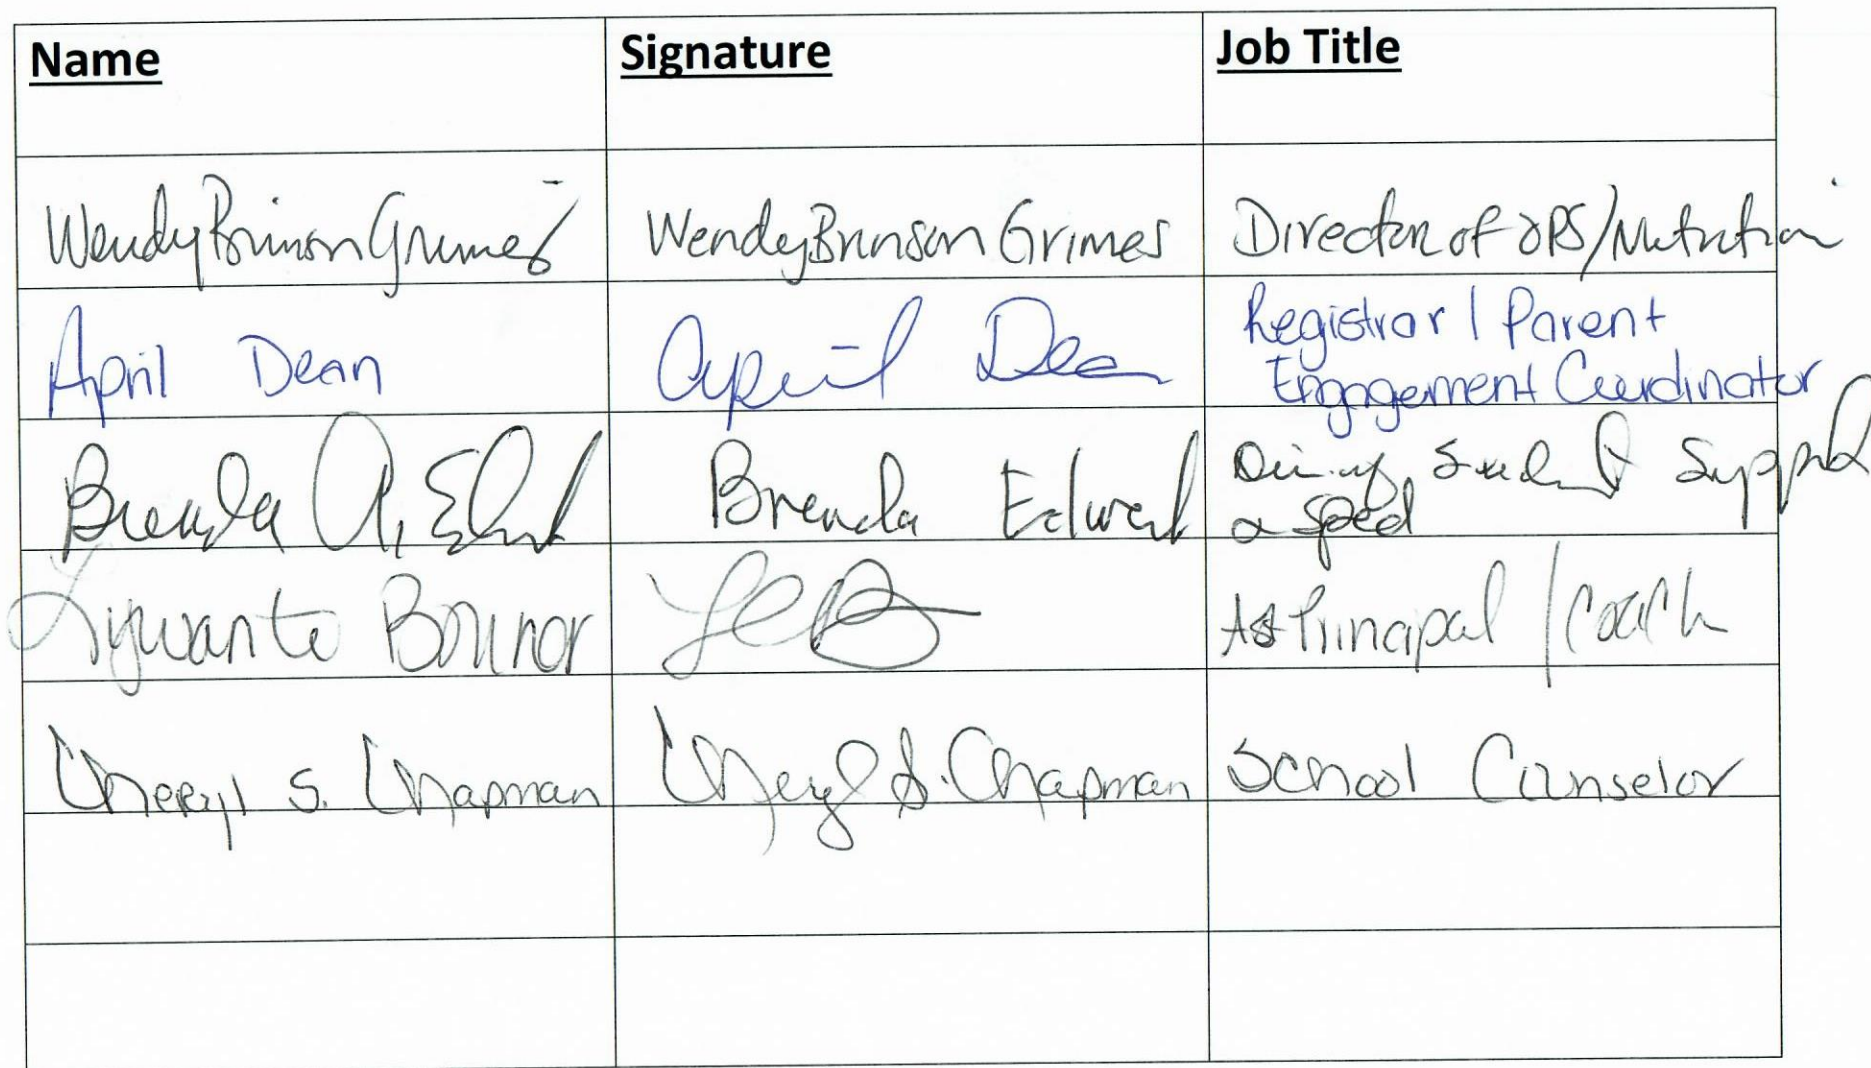 Name Signature Job Title
Wendy Brinson Grimes Wendy Brinson Grimes Director of OPS/Nutrition
April Dean April Dean Registrar / Parent
Engagement Coordinator
Brenda A. Brenda Support
& Sped
Bonnor Principal / Coach
Cheryl S. Chapman Cheryl S. Chapman School Counselor